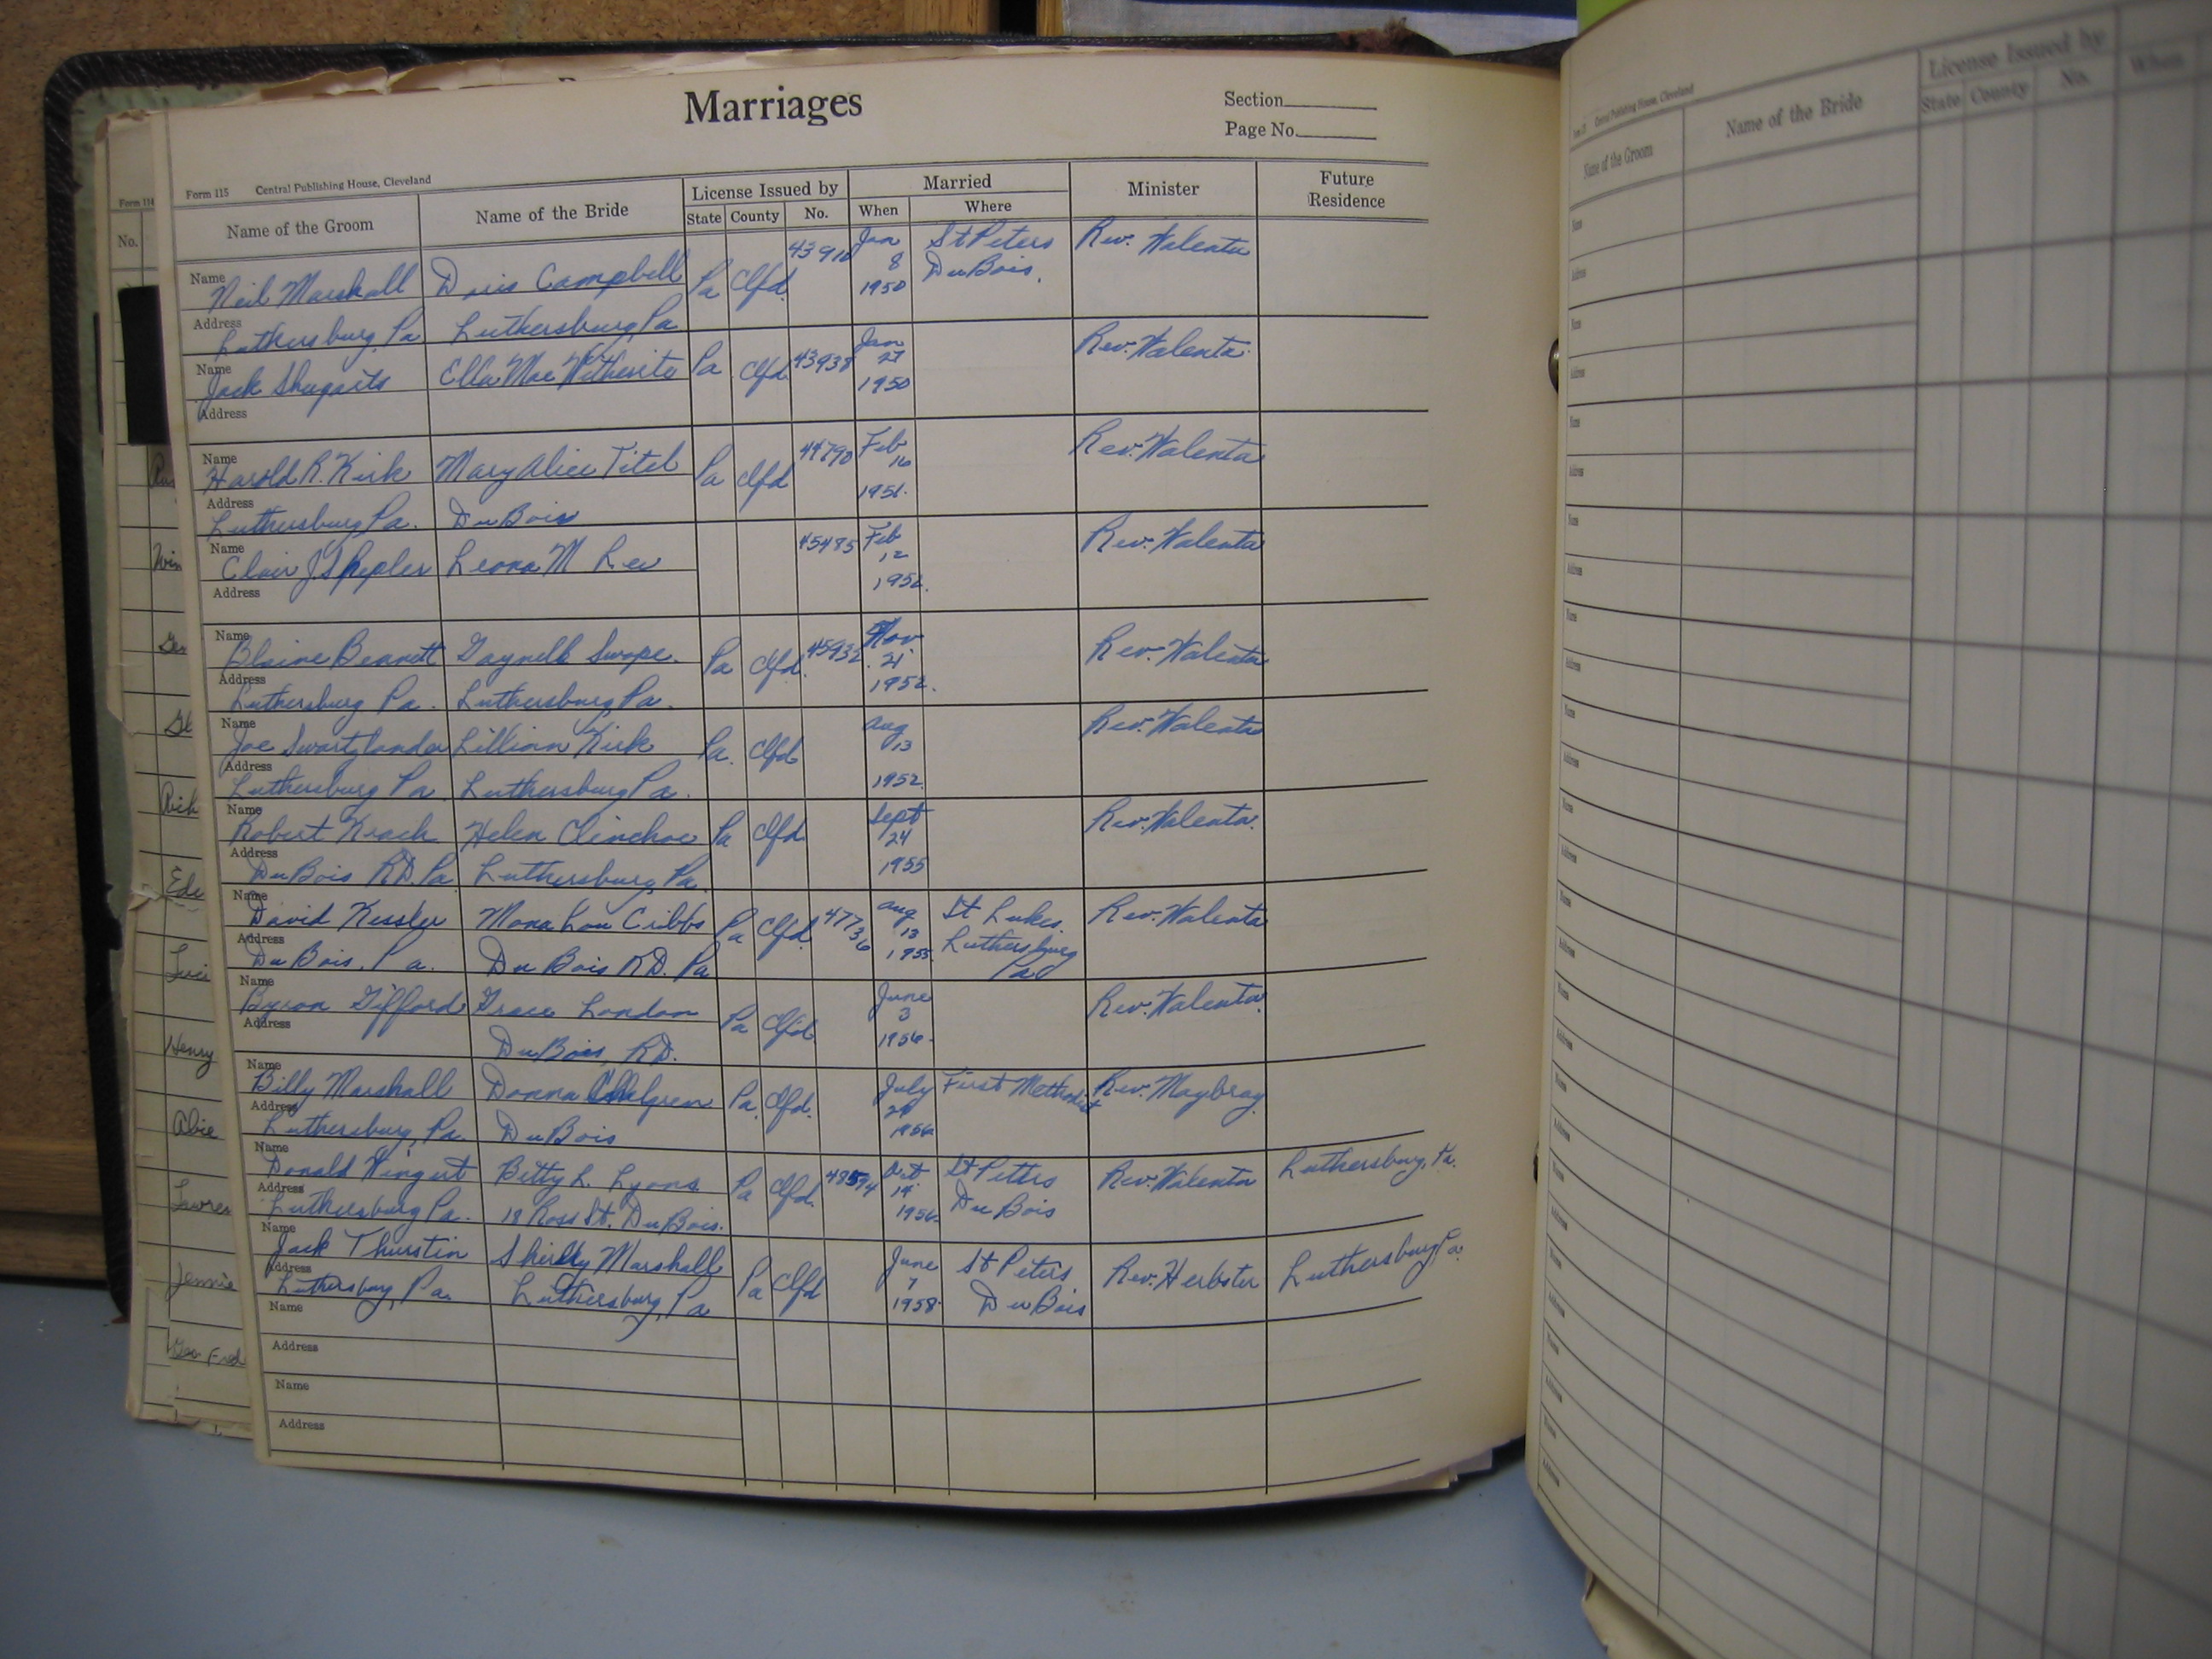 Marriages
Section
Page No.
Form 115 Central Publishing House, Cleveland
Name of the Groom Name of the Bride License Issued by Married Minister Future Residence
State County No. When Where
Name Neil Marshall Doris Campbell Pa Clfd. Jan 8 1950 St Peters DuBois. Rev. Valenta
Address Luthersburg, Pa Luthersburg, Pa
Name Jack Shugarts Ella Mae Witherite Pa Clfd 43938 Jan 27 1950 Rev. Valenta.
Address
Name Harold R. Kirk Mary Alice Titel Pa Clfd 44790 Feb 16 1951. Rev. Valenta
Address Luthersburg, Pa. DuBois
Name Clair J Shepler Leona M 45485 Feb 12 1952. Rev. Valenta
Address
Name Blaine Bennett Gaynell Swope. Pa Clfd. 45932 Nov. 21. 1952. Rev. Valenta
Address Luthersburg Pa. Luthersburg, Pa.
Name Joe Swartzlander Lillian Kirk Pa. Clfd Aug 13 1952 Rev. Valenta
Address Luthersburg Pa Luthersburg Pa.
Name Robert Krach Helen Clinehoe Pa Clfd Sept 24 1955 Rev. Valenta.
Address DuBois RD. Pa Luthersburg, Pa.
Name David Kessler Mona Lou Cribbs Pa Clfd. 47736 Aug 13 1955 St Lukes. Luthersburg Pa Rev. Valenta
Address DuBois, Pa. DuBois RD. Pa
Name Byron Gifford Grace London Pa Clfd. June 3 1956. Rev. Valenta.
Address DuBois, RD.
Name Billy Marshall Donna Pa. Clfd. July 1956 First Methodist Rev. Maybray.
Address Luthersburg, Pa. DuBois
Name Donald Wingert Betty L. Lyons. Pa Clfd. 48594 Oct 14. 1956. St Peters DuBois Rev. Valenta Luthersburg, Pa.
Address Luthersburg Pa. 18 Ross St. DuBois.
Name Jack Thurstin Shirley Marshall Pa Clfd June 7 1958. St Peters DuBois Rev. Herbster Luthersburg Pa.
Address Luthersburg, Pa. Luthersburg, Pa
Name
Address
Name
Address
Form 114
No.
Henry
Jennie
Central Publishing House, Cleveland
Name of the Groom Name of the Bride License Issued by
State County No. When